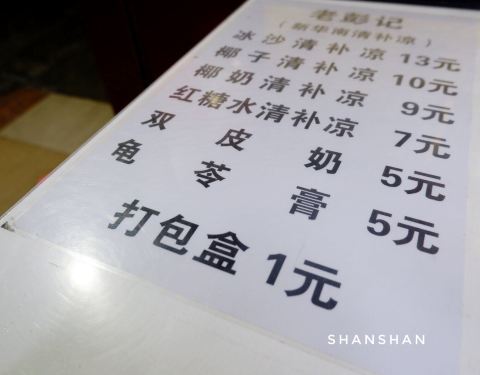 老彭记
（新华南清补凉）
冰沙清补凉 13元
椰子清补凉 10元
椰奶清补凉 9元
红糖水清补凉 7元
双皮奶 5元
龟苓膏 5元
打包盒 1元
SHANSHAN